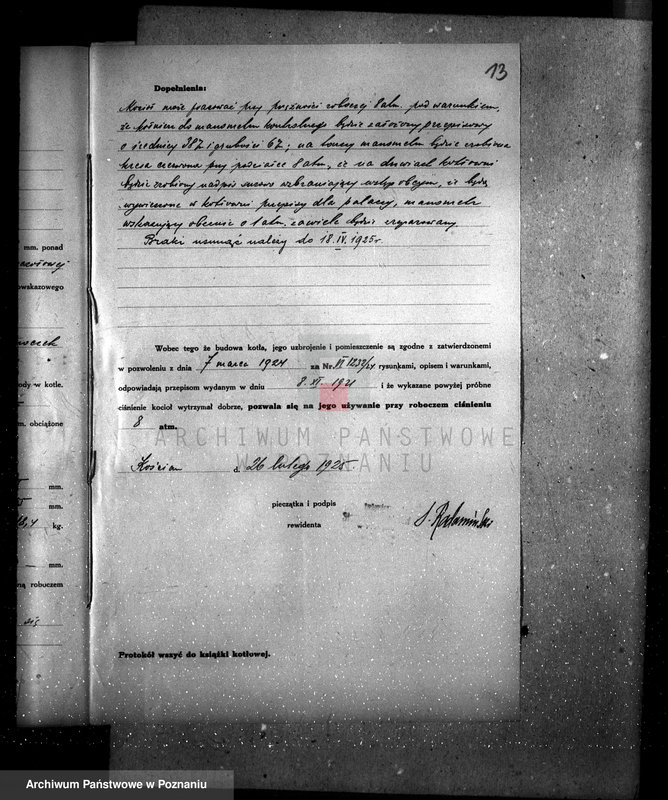 13
Dopełnienia:
Kocioł może pracować przy prężności roboczej 8 atm. pod warunkiem,
że kołnierz do manometru kontrolnego będzie założony przepisowy
o średnicy 387 i grubości 67; na tarczy manometru będzie zrobiona
kresa czerwona przy podziałce 8 atm, że na drzwiach kotłowni
będzie zrobiony nadpis surowo wzbraniający wstęp obcym, że będą
wywieszone w kotłowni przepisy dla palaczy, manometr
wskazujący obecnie o 1 atm. za wiele będzie naprawiony.
Braki usunąć należy do 18.IV.1925r.
mm. ponad
owskazowego
ody w kotle.
m. obciążone
mm.
mm.
kg.
mm.
ną roboczem
się
Wobec tego że budowa kotła, jego uzbrojenie i pomieszczenie są zgodne z zatwierdzonemi
w pozwoleniu z dnia 7 marca 1924 za Nr. VI 1232/24 rysunkami, opisem i warunkami,
odpowiadają przepisom wydanym w dniu 8.XI.1921 i że wykazane powyżej próbne
ciśnienie kocioł wytrzymał dobrze, pozwala się na jego używanie przy roboczem ciśnieniu
8 atm.
ARCHIWUM PAŃSTWOWE
W POZNANIU
Kościan d 26 lutego 1925.
pieczątka i podpis
rewidenta
Protokół wszyć do książki kotłowej.
Archiwum Państwowe w Poznaniu